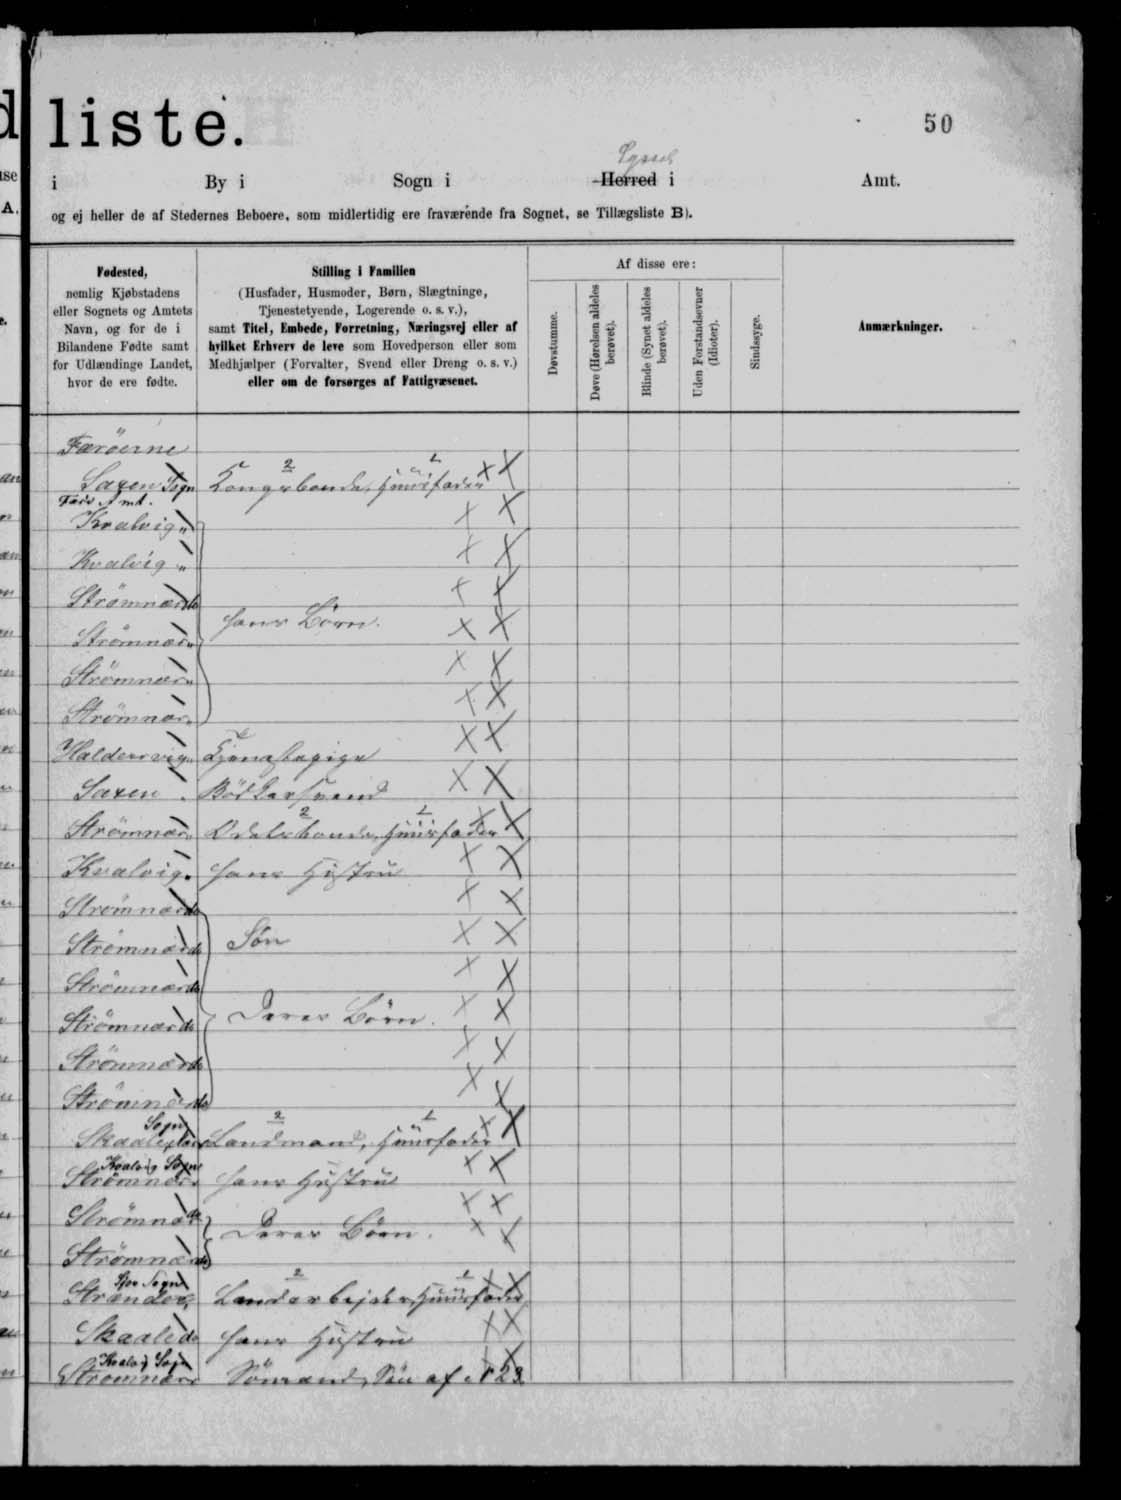 liste.
50
Syssel
i By i Sogn i Herred i Amt.
og ej heller de af Stedernes Beboere, som midlertidig ere fraværende fra Sognet, se Tillægsliste B).
Fødested,
nemlig Kjøbstadens
eller Sognets og Amtets
Navn, og for de i
Bilandene Fødte samt
for Udlændinge Landet,
hvor de ere fødte.
Stilling i Familien
(Husfader, Husmoder, Børn, Slægtninge,
Tjenestetyende, Logerende o. s. v.),
samt Titel, Embede, Forretning, Næringsvej eller af
hvilket Erhverv de leve som Hovedperson eller som
Medhjælper (Forvalter, Svend eller Dreng o. s. v.)
eller om de forsørges af Fattigvæsenet.
Af disse ere:
Døvstumme.
Døve (Hørelsen aldeles
berøvet).
Blinde (Synet aldeles
berøvet).
Uden Forstandsevner
(Idioter).
Sindssyge.
Anmærkninger.
Færöerne
2 1
Saxen Sogn Kongsbonde, Huusfader
Færø Amt.
Kvalvig "
Kvalvig "
Strömnæs do
hans Börn.
Strömnæs "
Strömnæs "
Strömnæs "
Haldersvig " Tjenestepige
Saxen " Bödkersvend
2 1
Strömnæs " Odelsbonde, Huusfader
Kvalvig " hans Hustru
Strömnæs do
Strömnæs do Sön
Strömnæs do
Strömnæs do Deres Börn.
Strömnæs do
Strömnæs do
Sogn 2 1
Skaale Landmand, Huusfader
Kvalvig Sogn
Strömnæs hans Hustru
Strömnæs do
Deres Börn.
Strömnæs do
Sogn 2 1
Strænder Landarbejder, Huusfader
Skaale do hans Hustru
Kvalvig Sogn
Strömnæs Sömand, Sön af 23.